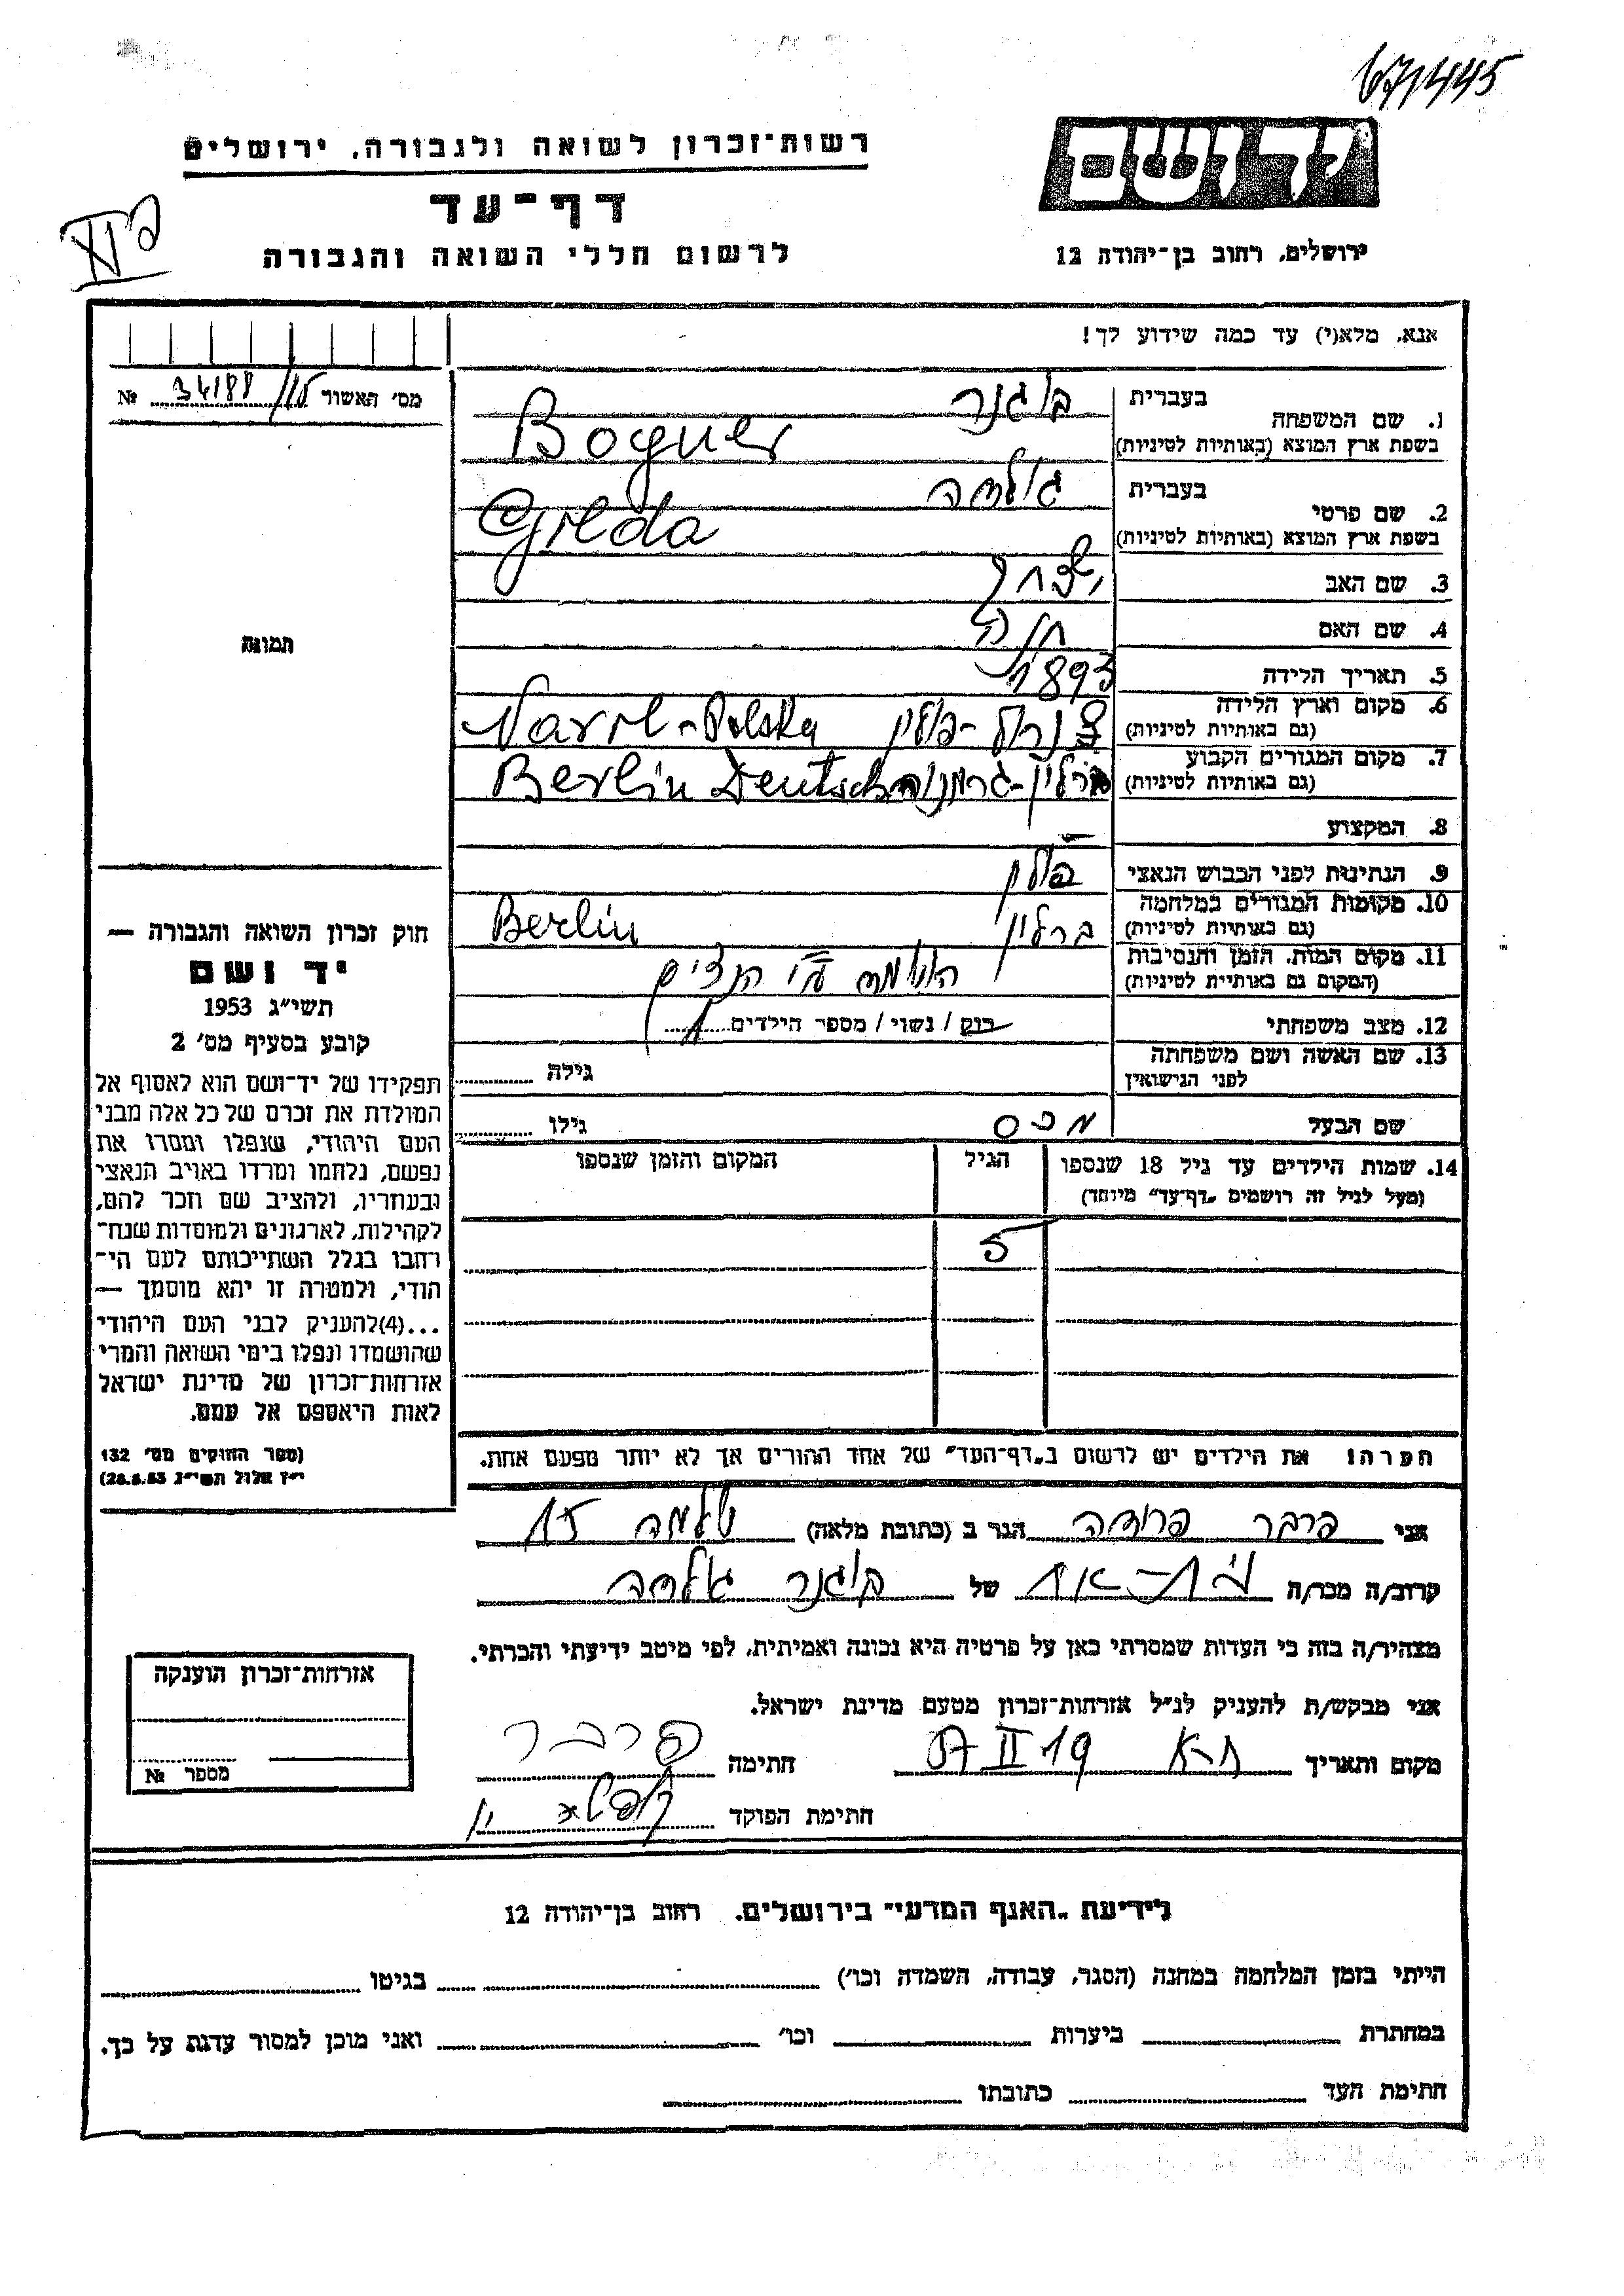 67/445
רשות־זכרון לשואה ולגבורה, ירושלים
יד ושם
דף־עד
לרשום חללי השואה והגבורה
ירושלים, רחוב בן־יהודה 12
אנא, מלא(י) עד כמה שידוע לך!
מס' האשור 34188 №
1. שם המשפחה בעברית בוגנר
בשפת ארץ המוצא (באותיות לטיניות) Bogner
2. שם פרטי בעברית גולדה
בשפת ארץ המוצא (באותיות לטיניות) Golda
3. שם האב יצחק
4. שם האם חנה
5. תאריך הלידה 1893
6. מקום וארץ הלידה פולין
(גם באותיות לטיניות) Polska
7. מקום המגורים הקבוע ברלין-גרמניה
(גם באותיות לטיניות) Berlin Deutsch
8. המקצוע —
9. הנתינות לפני הכבוש הנאצי פולין
10. מקומות המגורים במלחמה ברלין
(גם באותיות לטיניות) Berlin
11. מקום המות, הזמן והנסיבות הושמדה ע"י הנאצים
(המקום גם באותיות לטיניות)
12. מצב משפחתי רוק / נשוי / מספר הילדים 1
13. שם האשה ושם משפחתה
לפני הנישואין גילה
שם הבעל מכס גילו
תמונה
14. שמות הילדים עד גיל 18 שנספו הגיל המקום והזמן שנספו
(מעל לגיל זה רושמים „דף־עד" מיוחד)
5
חוק זכרון השואה והגבורה —
יד ושם
תשי"ג 1953
קובע בסעיף מס' 2
תפקידו של יד־ושם הוא לאסוף אל
המולדת את זכרם של כל אלה מבני
העם היהודי, שנפלו ומסרו את
נפשם, נלחמו ומרדו באויב הנאצי
ובעוזריו, ולהציב שם וזכר להם,
לקהילות, לארגונים ולמוסדות שנח־
רבו בגלל השתייכותם לעם הי־
הודי, ולמטרה זו יהא מוסמך —
...(4)להעניק לבני העם היהודי
שהושמדו ונפלו בימי השואה והמרי
אזרחות־זכרון של מדינת ישראל
לאות היאספם אל עמם.
(ספר החוקים מס' 132
י"ז אלול תשי"ג 28.8.53)
הערה! את הילדים יש לרשום ב„דף־העד" של אחד ההורים אך לא יותר מפעם אחת.
אני פרבר פרידה הגר ב (כתובת מלאה) שלמה
קרוב/ה מכר/ה של בוגנר גולדה
מצהיר/ה בזה כי העדות שמסרתי כאן על פרטיה היא נכונה ואמיתית, לפי מיטב ידיעתי והכרתי.
אני מבקש/ת להעניק לנ"ל אזרחות־זכרון מטעם מדינת ישראל.
מקום ותאריך ת-א 19 II 57 חתימה פרבר
חתימת הפוקד
אזרחות־זכרון הוענקה
מספר №
לידיעת „האגף המדעי" בירושלים, רחוב בן־יהודה 12
הייתי בזמן המלחמה במחנה (הסגר, עבודה, השמדה וכו') בגיטו
במחתרת ביערות וכו' ואני מוכן למסור עדות על כך.
חתימת העד כתובתו